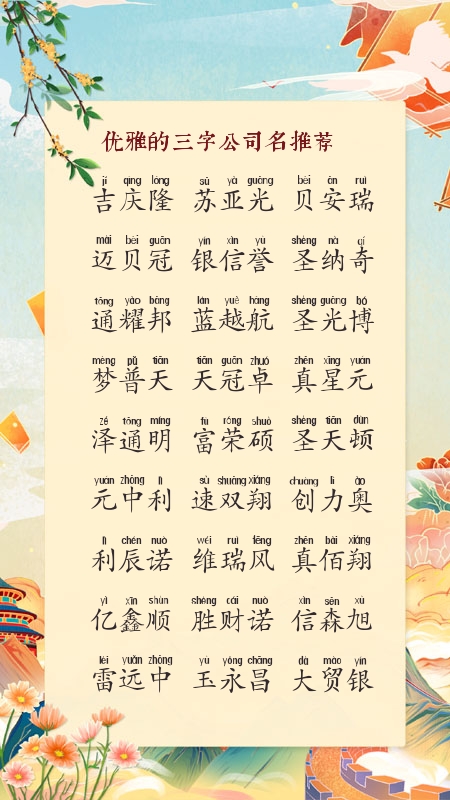 优雅的三字公司名推荐
jí qìng lóng sū yà guāng bèi ān ruì
吉庆隆 苏亚光 贝安瑞
mài bèi guān yín xìn yù shèng nà qí
迈贝冠 银信誉 圣纳奇
tōng yào bāng lán yuè háng shèng guāng bó
通耀邦 蓝越航 圣光博
mèng pǔ tiān tiān guān zhuó zhēn xīng yuán
梦普天 天冠卓 真星元
zé tōng míng fù róng shuò shèng tiān dùn
泽通明 富荣硕 圣天顿
yuán zhōng lì sù shuāng xiáng chuàng lì ào
元中利 速双翔 创力奥
lì chén nuò wéi ruì fēng zhēn bǎi xiáng
利辰诺 维瑞风 真佰翔
yì xīn shùn shèng cái nuò xìn sēn xù
亿鑫顺 胜财诺 信森旭
léi yuǎn zhōng yù yǒng chāng dà mào yín
雷远中 玉永昌 大贸银